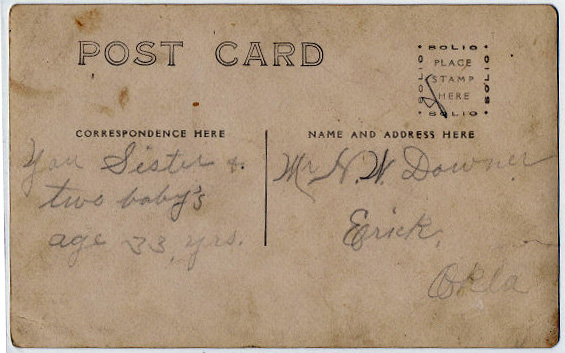 POST CARD
SOLIO
SOLIO PLACE SOLIO
STAMP
HERE
SOLIO
CORRESPONDENCE HERE
NAME AND ADDRESS HERE
You Sister &
two baby's
age 33, yrs.
Mr H. W. Downer
Erick,
Okla